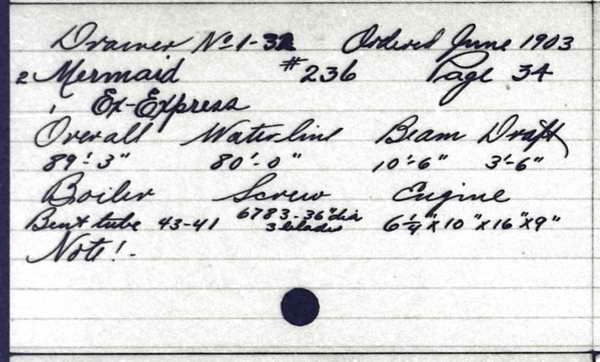 Drawer No 1-32 Ordered June 1903
2 Mermaid #236 Page 34
1 Ex-Express
Overall Waterline Beam Draft
89'-3" 80'-0" 10'-6" 3'-6"
Boiler Screw Engine
Bent tube 43-41 6783-36"dia 3 blades 6 1/4"x10"x16"x9"
Note!-